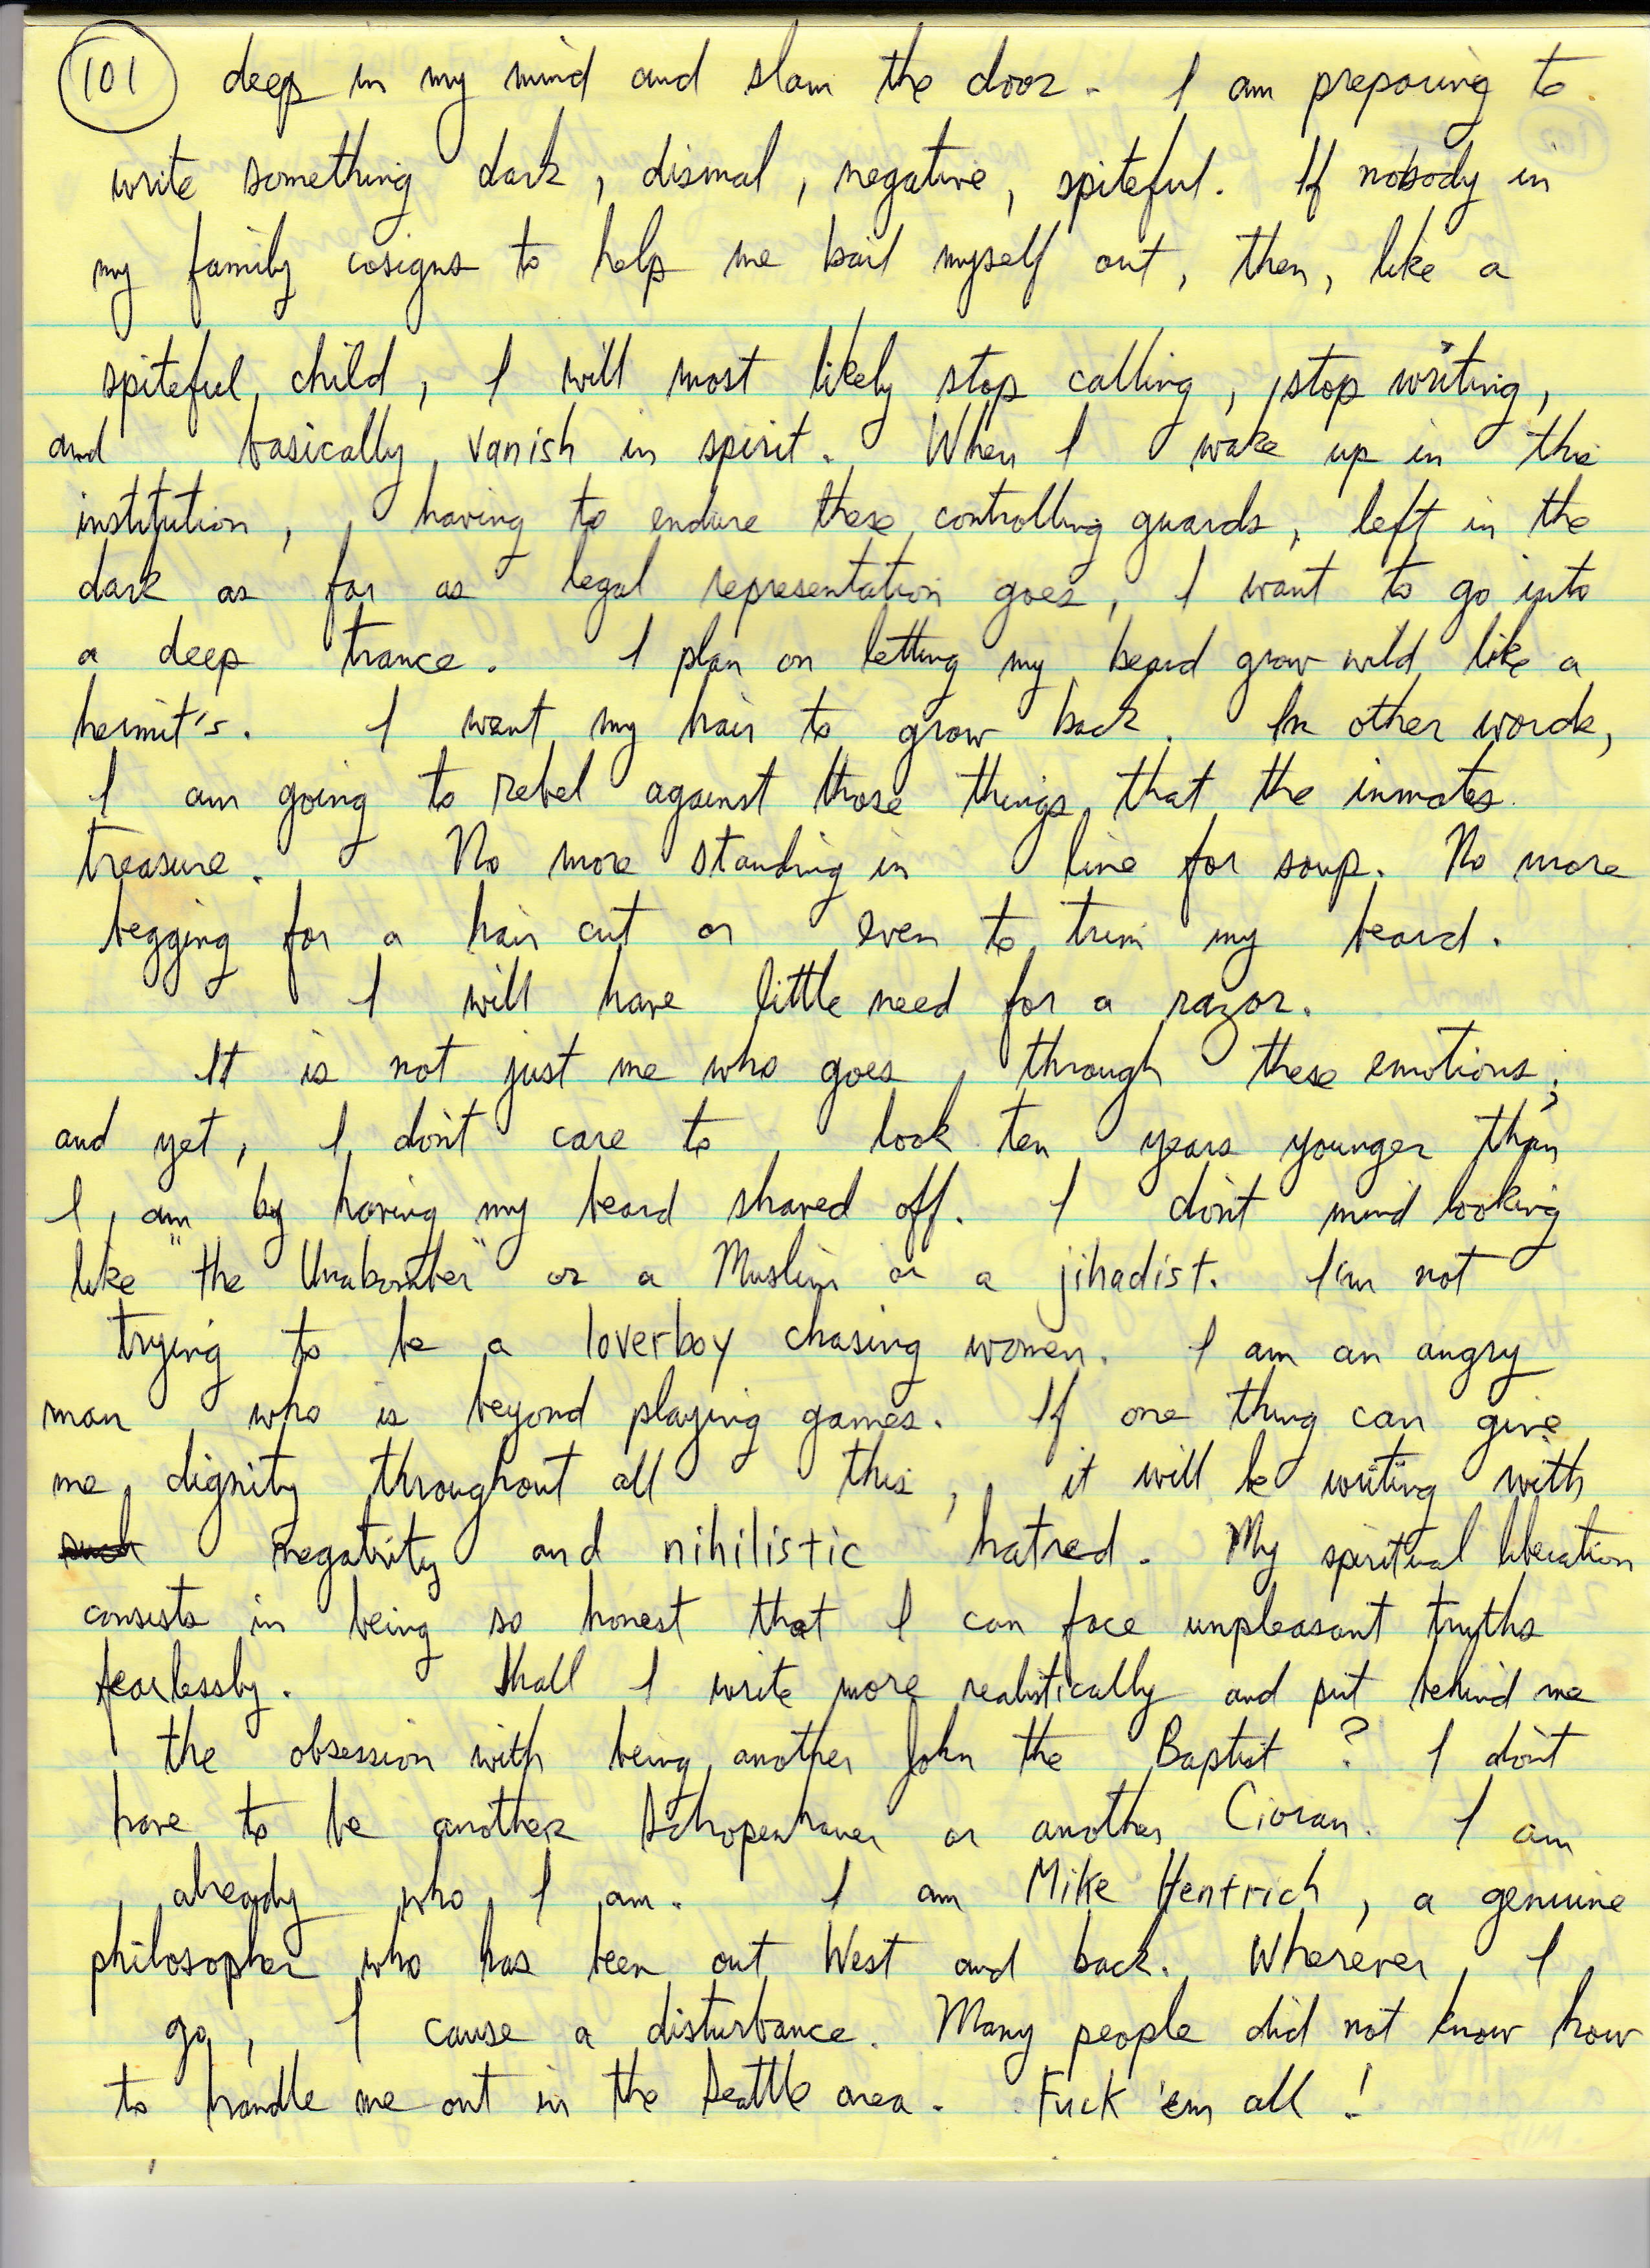 101 deep in my mind and slam the door. I am preparing to
write something dark, dismal, negative, spiteful. If nobody in
my family cosigns to help me bail myself out, then, like a
spiteful child, I will most likely stop calling, stop writing,
and basically vanish in spirit. When I wake up in this
institution, having to endure these controlling guards, left in the
dark as far as legal representation goes, I want to go into
a deep trance. I plan on letting my beard grow wild like a
hermit's. I want my hair to grow back. In other words,
I am going to rebel against those things that the inmates
treasure. No more standing in line for soup. No more
begging for a hair cut or even to trim my beard.
I will have little need for a razor.
It is not just me who goes through these emotions;
and yet, I don't care to look ten years younger than
I am by having my beard shaved off. I don't mind looking
like "the Unabomber" or a Muslim or a jihadist. I'm not
trying to be a loverboy chasing women. I am an angry
man who is beyond playing games. If one thing can give
me dignity throughout all this, it will be writing with
such negativity and nihilistic hatred. My spiritual liberation
consists in being so honest that I can face unpleasant truths
fearlessly. Shall I write more realistically and put behind me
the obsession with being another John the Baptist? I don't
have to be another Schopenhauer or another Cioran. I am
already who I am. I am Mike Hentrich, a genuine
philosopher who has been out West and back. Wherever I
go, I cause a disturbance. Many people did not know how
to handle me out in the Seattle area. Fuck 'em all!